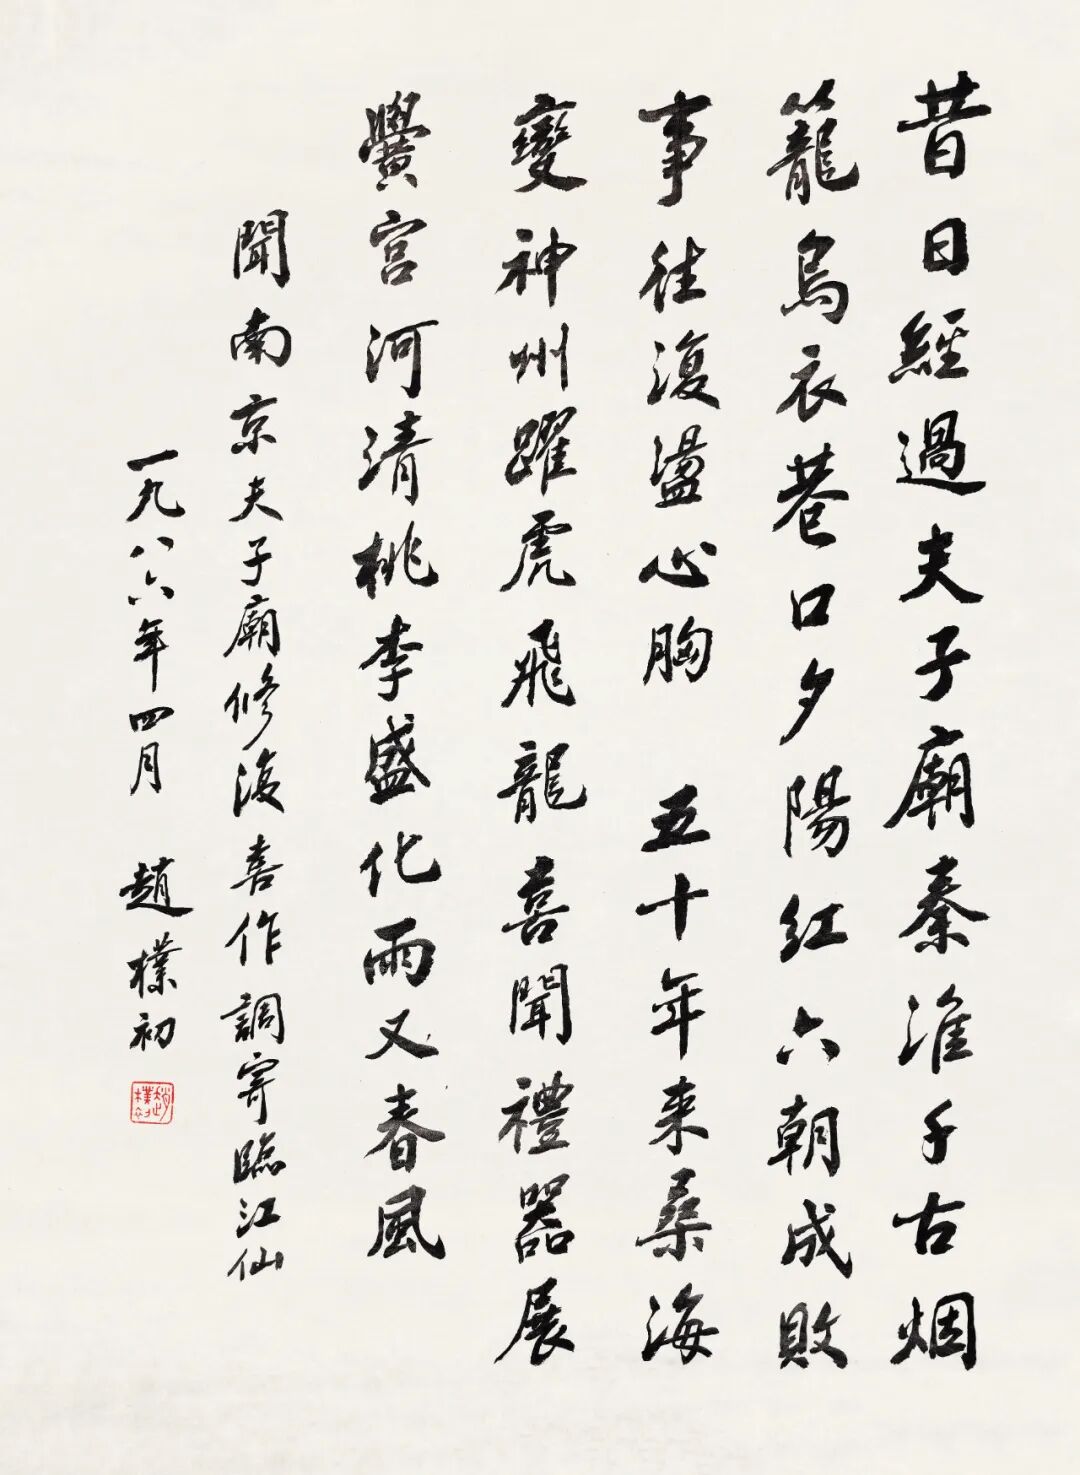 昔日經過夫子廟秦淮千古烟
籠烏衣巷口夕陽紅六朝成敗
事往復盪心胸　五十年来桑海
變神州躍虎飛龍喜聞禮器展
黌宮河清桃李盛化雨又春風
聞南京夫子廟修復喜作調寄臨江仙
一九八六年四月　趙樸初
趙樸初